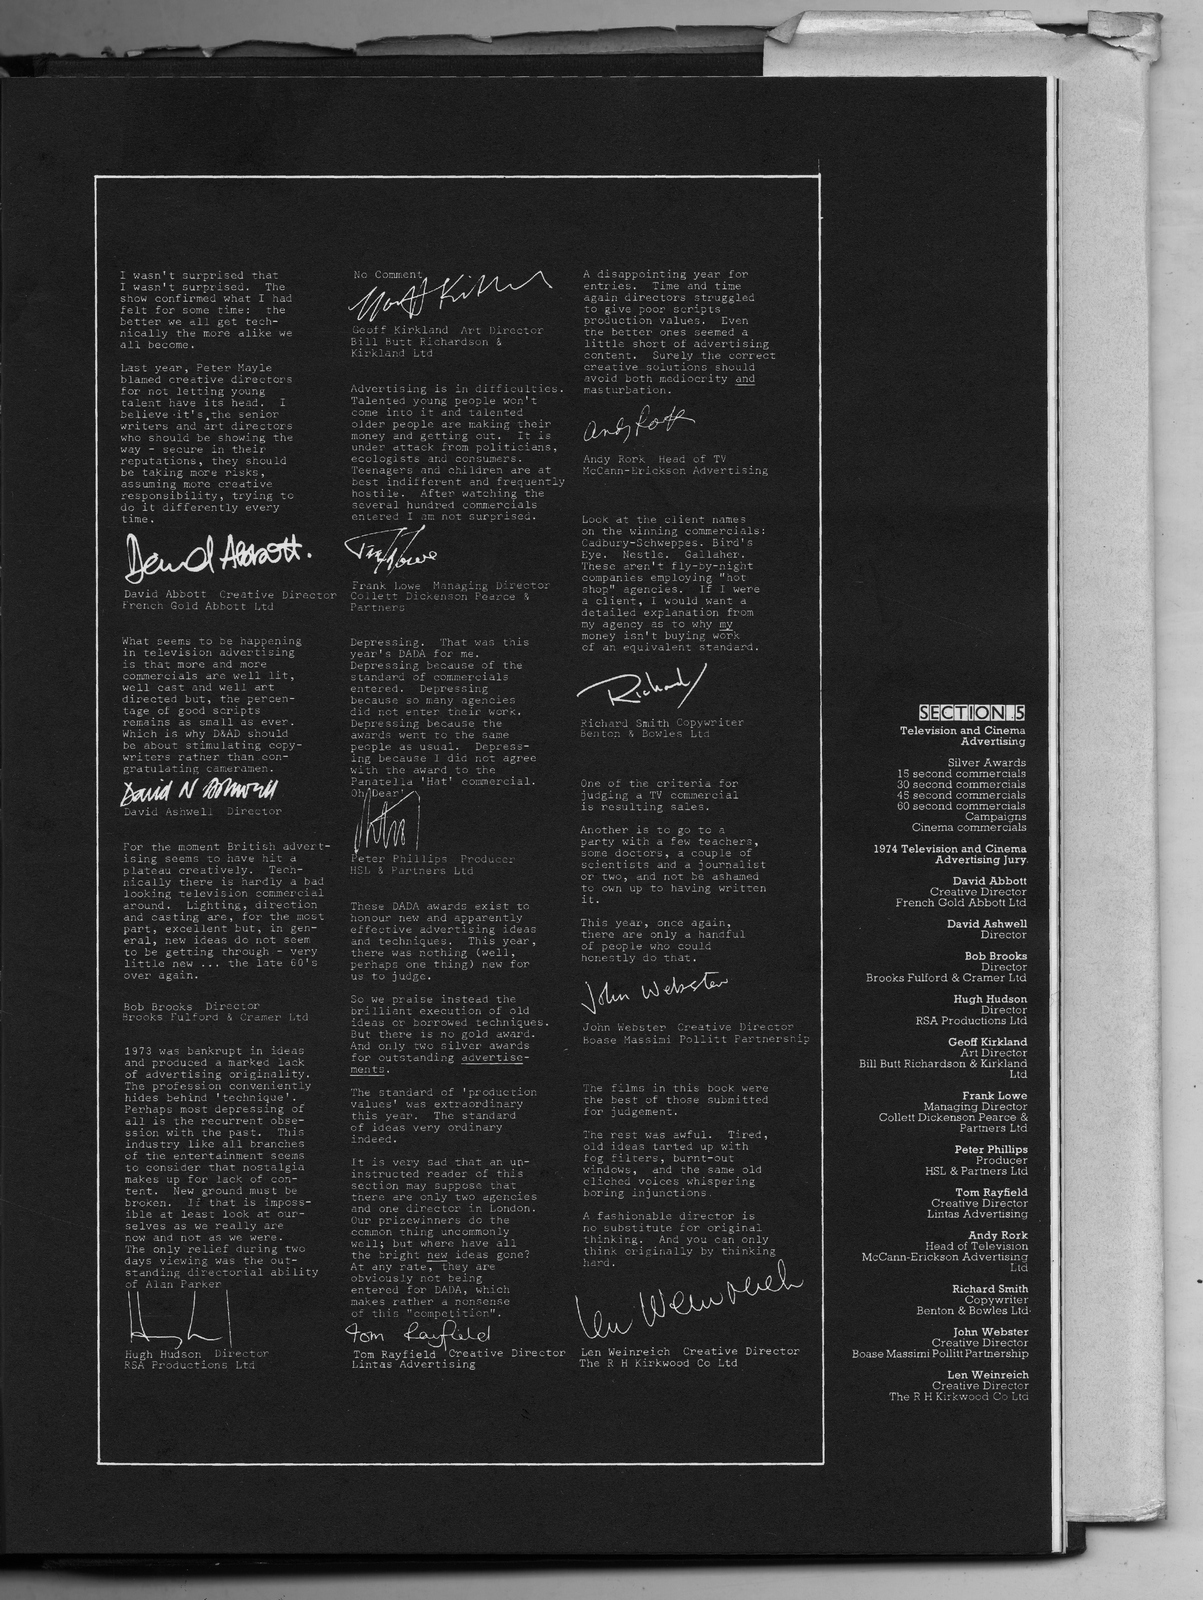 I wasn't surprised that
I wasn't surprised. The
show confirmed what I had
felt for some time: the
better we all get tech-
nically the more alike we
all become.
Last year, Peter Mayle
blamed creative directors
for not letting young
talent have its head. I
believe it's the senior
writers and art directors
who should be showing the
way - secure in their
reputations, they should
be taking more risks,
assuming more creative
responsibility, trying to
do it differently every
time.
David Abbott.
David Abbott Creative Director
French Gold Abbott Ltd
What seems to be happening
in television advertising
is that more and more
commercials are well lit,
well cast and well art
directed but, the percen-
tage of good scripts
remains as small as ever.
Which is why D&AD should
be about stimulating copy-
writers rather than con-
gratulating cameramen.
David N Ashwell
David Ashwell Director
For the moment British advert-
ising seems to have hit a
plateau creatively. Tech-
nically there is hardly a bad
looking television commercial
around. Lighting, direction
and casting are, for the most
part, excellent but, in gen-
eral, new ideas do not seem
to be getting through - very
little new ... the late 60's
over again.
Bob Brooks Director
Brooks Fulford & Cramer Ltd
1973 was bankrupt in ideas
and produced a marked lack
of advertising originality.
The profession conveniently
hides behind 'technique'.
Perhaps most depressing of
all is the recurrent obse-
ssion with the past. This
industry like all branches
of the entertainment seems
to consider that nostalgia
makes up for lack of con-
tent. New ground must be
broken. If that is imposs-
ible at least look at our-
selves as we really are
now and not as we were.
The only relief during two
days viewing was the out-
standing directorial ability
of Alan Parker
Hugh Hudson Director
RSA Productions Ltd
No Comment
Geoff Kirkland Art Director
Bill Butt Richardson &
Kirkland Ltd
Advertising is in difficulties.
Talented young people won't
come into it and talented
older people are making their
money and getting out. It is
under attack from politicians,
ecologists and consumers.
Teenagers and children are at
best indifferent and frequently
hostile. After watching the
several hundred commercials
entered I am not surprised.
Frank Lowe Managing Director
Collett Dickenson Pearce &
Partners
Depressing. That was this
year's DADA for me.
Depressing because of the
standard of commercials
entered. Depressing
because so many agencies
did not enter their work.
Depressing because the
awards went to the same
people as usual. Depress-
ing because I did not agree
with the award to the
Panatella 'Hat' commercial.
Oh Dear!
Peter Phillips Producer
HSL & Partners Ltd
These DADA awards exist to
honour new and apparently
effective advertising ideas
and techniques. This year,
there was nothing (well,
perhaps one thing) new for
us to judge.
So we praise instead the
brilliant execution of old
ideas or borrowed techniques.
But there is no gold award.
And only two silver awards
for outstanding advertise-
ments.
The standard of 'production
values' was extraordinary
this year. The standard
of ideas very ordinary
indeed.
It is very sad that an un-
instructed reader of this
section may suppose that
there are only two agencies
and one director in London.
Our prizewinners do the
common thing uncommonly
well; but where have all
the bright new ideas gone?
At any rate, they are
obviously not being
entered for DADA, which
makes rather a nonsense
of this "competition".
Tom Rayfield
Tom Rayfield Creative Director
Lintas Advertising
A disappointing year for
entries. Time and time
again directors struggled
to give poor scripts
production values. Even
the better ones seemed a
little short of advertising
content. Surely the correct
creative solutions should
avoid both mediocrity and
masturbation.
Andy Rork
Andy Rork Head of TV
McCann-Erickson Advertising
Look at the client names
on the winning commercials:
Cadbury-Schweppes. Bird's
Eye. Nestle. Gallaher.
These aren't fly-by-night
companies employing "hot
shop" agencies. If I were
a client, I would want a
detailed explanation from
my agency as to why my
money isn't buying work
of an equivalent standard.
Richard
Richard Smith Copywriter
Benton & Bowles Ltd
One of the criteria for
judging a TV commercial
is resulting sales.
Another is to go to a
party with a few teachers,
some doctors, a couple of
scientists and a journalist
or two, and not be ashamed
to own up to having written
it.
This year, once again,
there are only a handful
of people who could
honestly do that.
John Webster
John Webster Creative Director
Boase Massimi Pollitt Partnership
The films in this book were
the best of those submitted
for judgement.
The rest was awful. Tired,
old ideas tarted up with
fog filters, burnt-out
windows, and the same old
cliched voices whispering
boring injunctions.
A fashionable director is
no substitute for original
thinking. And you can only
think originally by thinking
hard.
Len Weinreich
Len Weinreich Creative Director
The R H Kirkwood Co Ltd
SECTION.5
Television and Cinema
Advertising
Silver Awards
15 second commercials
30 second commercials
45 second commercials
60 second commercials
Campaigns
Cinema commercials
1974 Television and Cinema
Advertising Jury.
David Abbott
Creative Director
French Gold Abbott Ltd
David Ashwell
Director
Bob Brooks
Director
Brooks Fulford & Cramer Ltd
Hugh Hudson
Director
RSA Productions Ltd
Geoff Kirkland
Art Director
Bill Butt Richardson & Kirkland
Ltd
Frank Lowe
Managing Director
Collett Dickenson Pearce &
Partners Ltd
Peter Phillips
Producer
HSL & Partners Ltd
Tom Rayfield
Creative Director
Lintas Advertising
Andy Rork
Head of Television
McCann-Erickson Advertising
Ltd
Richard Smith
Copywriter
Benton & Bowles Ltd
John Webster
Creative Director
Boase Massimi Pollitt Partnership
Len Weinreich
Creative Director
The R H Kirkwood Co Ltd